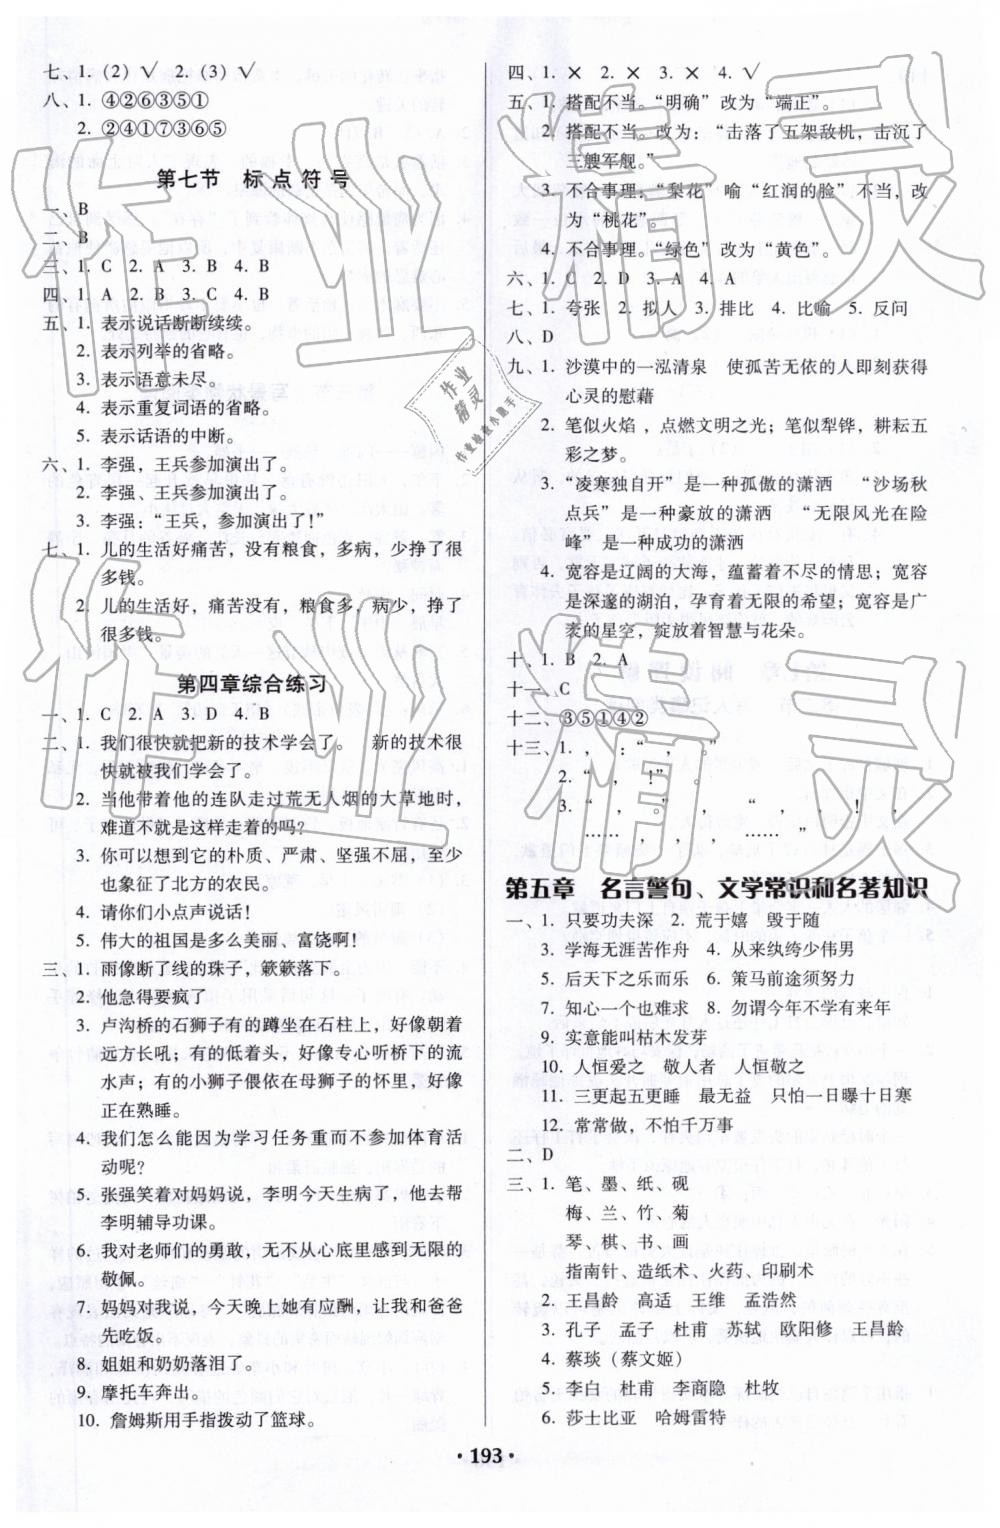 七、1.（2）√　2.（3）√
八、1. ④②⑥③⑤①
2. ②④①⑦③⑥⑤
第七节　标点符号
一、B
二、B
三、1. C　2. A　3. B　4. B
四、1. A　2. B　3. C　4. B
五、1. 表示说话断断续续。
2. 表示列举的省略。
3. 表示语意未尽。
4. 表示重复词语的省略。
5. 表示话语的中断。
六、1. 李强，王兵参加演出了。
2. 李强、王兵参加演出了。
3. 李强：“王兵，参加演出了！”
七、1. 儿的生活好痛苦，没有粮食，多病，少挣了很
多钱。
2. 儿的生活好，痛苦没有，粮食多，病少，挣了
很多钱。
第四章综合练习
一、1. C　2. A　3. D　4. B
二、1. 我们很快就把新的技术学会了。　新的技术很
快就被我们学会了。
2. 当他带着他的连队走过荒无人烟的大草地时，
难道不就是这样走着的吗？
3. 你可以想到它的朴质、严肃、坚强不屈，至少
也象征了北方的农民。
4. 请你们小点声说话！
5. 伟大的祖国是多么美丽、富饶啊！
三、1. 雨像断了线的珠子，簌簌落下。
2. 他急得要疯了
3. 卢沟桥的石狮子有的蹲坐在石柱上，好像朝着
远方长吼；有的低着头，好像专心听桥下的流
水声；有的小狮子偎依在母狮子的怀里，好像
正在熟睡。
4. 我们怎么能因为学习任务重而不参加体育活
动呢？
5. 张强笑着对妈妈说，李明今天生病了，他去帮
李明辅导功课。
6. 我对老师们的勇敢，无不从心底里感到无限的
敬佩。
7. 妈妈对我说，今天晚上她有应酬，让我和爸爸
先吃饭。
8. 姐姐和奶奶落泪了。
9. 摩托车奔出。
10. 詹姆斯用手指拨动了篮球。
四、1. ×　2. ×　3. ×　4. √
五、1. 搭配不当。“明确”改为“端正”。
2. 搭配不当。改为：“击落了五架敌机，击沉了
三艘军舰。”
3. 不合事理：“梨花”喻“红润的脸”不当，改
为“桃花”。
4. 不合事理。“绿色”改为“黄色”。
六、1. C　2. D　3. A　4. A
七、1. 夸张　2. 拟人　3. 排比　4. 比喻　5. 反问
八、D
九、1. 沙漠中的一泓清泉　使孤苦无依的人即刻获得
心灵的慰藉
2. 笔似火焰，点燃文明之光；笔似犁铧，耕耘五
彩之梦。
3. “凌寒独自开”是一种孤傲的潇洒　“沙场秋
点兵”是一种豪放的潇洒　“无限风光在险
峰”是一种成功的潇洒
4. 宽容是辽阔的大海，蕴蓄着不尽的情思；宽容
是深邃的湖泊，孕育着无限的希望；宽容是广
袤的星空，绽放着智慧与花朵。
十、1. B　2. A
十一、C
十二、③⑤①④②
十三、1. ，　：“　，　。”
2. “　，　！”　。
3. “　，　。”　，　“　，　！，
……　，　……　”
第五章　名言警句、文学常识和名著知识
一、1. 只要功夫深　2. 荒于嬉　毁于随
3. 学海无涯苦作舟　4. 从来纨绔少伟男
5. 后天下之乐而乐　6. 策马前途须努力
7. 知心一个也难求　8. 勿谓今年不学有来年
9. 实意能叫枯木发芽
10. 人恒爱之　敬人者　人恒敬之
11. 三更起五更睡　最无益　只怕一日曝十日寒
12. 常常做，不怕千万事
二、D
三、1. 笔、墨、纸、砚
梅、兰、竹、菊
琴、棋、书、画
指南针、造纸术、火药、印刷术
2. 王昌龄　高适　王维　孟浩然
3. 孔子　孟子　杜甫　苏轼　欧阳修　王昌龄
4. 蔡琰（蔡文姬）
5. 李白　杜甫　李商隐　杜牧
6. 莎士比亚　哈姆雷特
• 193 •
作业精灵
作业精灵
作业精灵